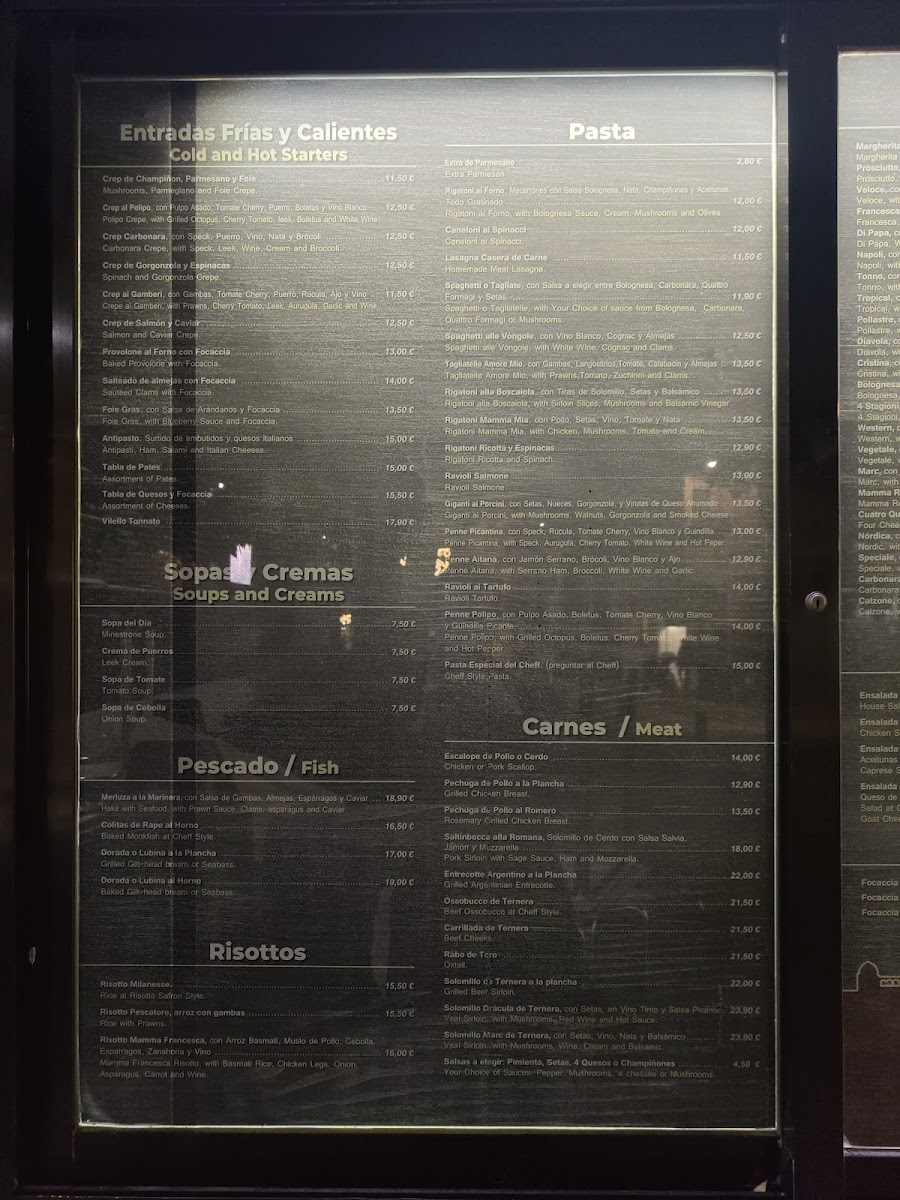 Entradas Frías y Calientes
Cold and Hot Starters
Crep de Champiñon, Parmesano y Foie 11,50 €
Mushrooms, Parmegiano and Foie Crepe.
Crep al Polipo, con Pulpo Asado, Tomate Cherry, Puerro, Boletus y Vino Blanco 12,50 €
Polipo Crepe, with Grilled Octopus, Cherry Tomato, leek, Boletus and White Wine.
Crep Carbonara, con Speck, Puerro, Vino, Nata y Brócoli 12,50 €
Carbonara Crepe, with Speck, Leek, Wine, Cream and Broccoli.
Crep de Gorgonzola y Espinacas 12,50 €
Spinach and Gorgonzola Crepe.
Crep ai Gamberi, con Gambas, Tomate Cherry, Puerro, Rúcula, Ajo y Vino 11,50 €
Crepe ai Gamberi, with Prawns, Cherry Tomato, Leek, Aurugula, Garlic and Wine
Crep de Salmón y Caviar 12,50 €
Salmon and Caviar Crepe.
Provolone al Forno con Focaccia 13,00 €
Baked Provolone with Focaccia.
Salteado de almejas con Focaccia 14,00 €
Sauteed Clams with Focaccia.
Foie Gras, con Salsa de Arándanos y Focaccia 13,50 €
Foie Gras, with Blueberry Sauce and Focaccia.
Antipasto, Surtido de embutidos y quesos italianos 15,00 €
Antipasti, Ham, Salami and Italian Cheeses.
Tabla de Pates 15,00 €
Assortment of Pates.
Tabla de Quesos y Focaccia 15,50 €
Assortment of Cheeses.
Vitello Tonnato 17,90 €
Sopas y Cremas
Soups and Creams
Sopa del Día 7,50 €
Minestrone Soup.
Crema de Puerros 7,50 €
Leek Cream.
Sopa de Tomate 7,50 €
Tomato Soup.
Sopa de Cebolla 7,50 €
Onion Soup.
Pescado / Fish
Merluza a la Marinera, con Salsa de Gambas, Almejas, Espárragos y Caviar 18,90 €
Hake with Seafood, with Prawn Sauce, Clams, asparagus and Caviar
Colitas de Rape al Horno 16,50 €
Baked Monkfish at Cheff Style.
Dorada o Lubina a la Plancha 17,00 €
Grilled Gilt-head bream or Seabass.
Dorada o Lubina al Horno 19,00 €
Baked Gilt-head bream or Seabass.
Risottos
Risotto Milanesse. 15,50 €
Rice at Risotto Safron Style.
Risotto Pescatore, arroz con gambas 15,50 €
Rice with Prawns.
Risotto Mamma Francesca, con Arroz Basmati, Muslo de Pollo, Cebolla,
Esparragos, Zanahoria y Vino 16,00 €
Mamma Francesca Risotto, with Basmati Rice, Chicken Legs, Onion,
Asparagus, Carrot and Wine.
Pasta
Extra de Parmesano 2,80 €
Extra Parmesan
Rigatoni al Forno, Macarrones con Salsa Bolognesa, Nata, Champiñones y Aceitunas
Todo Gratinado 12,00 €
Rigatoni al Forno, with Bolognesa Sauce, Cream, Mushrooms and Olives
Caneloni ai Spinacci 12,00 €
Caneloni ai Spinacci.
Lasagna Casera de Carne 11,50 €
Homemade Meat Lasagna.
Spaghetti o Tagliate, con Salsa a elegir entre Bolognesa, Carbonara, Quattro
Formagi y Setas 11,90 €
Spaghetti o Tagliatelle, with Your Choice of sauce from Bolognesa, Carbonara,
Quattro Formagi or Mushrooms.
Spaghetti alle Vongole, con Vino Blanco, Cognac y Almejas 12,50 €
Spaghetti alle Vongole, with White Wine, Cognac and Clams.
Tagliatelle Amore Mio, con Gambas, Langostinos, Tomate, Calabacin y Almejas 13,50 €
Tagliatelle Amore Mio, with Prawns, Tomato, Zuchinni and Clams.
Rigatoni alla Boscaiola, con Tiras de Solomillo, Setas y Balsámico 13,50 €
Rigatoni alla Boscaiola, with Sirloin Slices, Mushrooms and Balsamic Vinegar
Rigatoni Mamma Mia, con Pollo, Setas, Vino, Tomate y Nata 13,50 €
Rigatoni Mamma Mia, with Chicken, Mushrooms, Tomato and Cream.
Rigatoni Ricotta y Espinacas 12,90 €
Rigatoni Ricotta and Spinach.
Ravioli Salmone 13,00 €
Ravioli Salmone
Giganti ai Porcini, con Setas, Nueces, Gorgonzola, y Virutas de Queso Ahumado 13,50 €
Giganti ai Porcini, with Mushrooms, Walnuts, Gorgonzola and Smoked Cheese
Penne Picantina, con Speck, Rúcula, Tomate Cherry, Vino Blanco y Guindilla 13,00 €
Penne Picantina, with Speck, Aurugula, Cherry Tomato, White Wine and Hot Peper.
Penne Aitana, con Jamón Serrano, Brócoli, Vino Blanco y Ajo 12,90 €
Penne Aitana, with Serrano Ham, Broccoli, White Wine and Garlic.
Ravioli ai Tartufo 14,00 €
Ravioli Tartufo.
Penne Polipo, con Pulpo Asado, Boletus, Tomate Cherry, Vino Blanco
y Guindilla Picante 14,00 €
Penne Polipo, with Grilled Octopus, Boletus, Cherry Tomato, White Wine
and Hot Pepper
Pasta Especial del Cheff, (preguntar al Cheff) 15,00 €
Cheff Style Pasta.
Carnes / Meat
Escalope de Pollo o Cerdo 14,00 €
Chicken or Pork Scallop.
Pechuga de Pollo a la Plancha 12,90 €
Grilled Chicken Breast.
Pechuga de Pollo al Romero 13,50 €
Rosemary Grilled Chicken Breast.
Saltinbocca alla Romana, Solomillo de Cerdo con Salsa Salvia,
Jamón y Muzzarella 18,00 €
Pork Sirloin with Sage Sauce, Ham and Mozzarella.
Entrecotte Argentino a la Plancha 22,00 €
Grilled Argentinian Entrecotte.
Ossobucco de Ternera 21,50 €
Beef Ossobucco at Cheff Style.
Carrillada de Ternera 21,50 €
Beef Cheeks.
Rabo de Toro 21,50 €
Oxtail.
Solomillo de Ternera a la plancha 22,00 €
Grilled Beef Sirloin.
Solomillo Drácula de Ternera, con Setas, en Vino Tinto y Salsa Picante 23,90 €
Veal Sirloin, with Mushrooms, Red Wine and Hot Sauce.
Solomillo Marc de Ternera, con Setas, Vino, Nata y Balsámico 23,90 €
Veal Sirloin, with Mushrooms, Wine, Cream and Balsamic.
Salsas a elegir: Pimienta, Setas, 4 Quesos o Champiñones 4,50 €
Your Choice of Sauces: Pepper, Mushrooms, 4 chesses or Mushrooms.
Margherita
Margherita
Prosciutto
Prosciutto
Veloce, con
Veloce, with
Francesca
Francesca,
Di Papa, co
Di Papa, W
Napoli, con
Napoli, with
Tonno, con
Tonno, with
Tropical, c
Tropical, w
Pollastre,
Pollastre, w
Diavola, co
Diavola, with
Cristina, co
Cristina, wi
Bolognesa
Bolognesa,
4 Stagioni
4 Stagioni,
Western, c
Western, w
Vegetale,
Vegetale, w
Marc, con
Marc, with
Mamma R
Mamma Ro
Cuatro Qu
Four Chee
Nórdica, c
Nordic, wit
Speciale,
Speciale, w
Carbonara
Carbonara
Calzone, c
Calzone, w
Ensalada
House Sal
Ensalada
Chicken S
Ensalada
Aceitunas
Caprese S
Ensalada
Queso de
Salad at C
Goat Chee
Focaccia
Focaccia
Focaccia